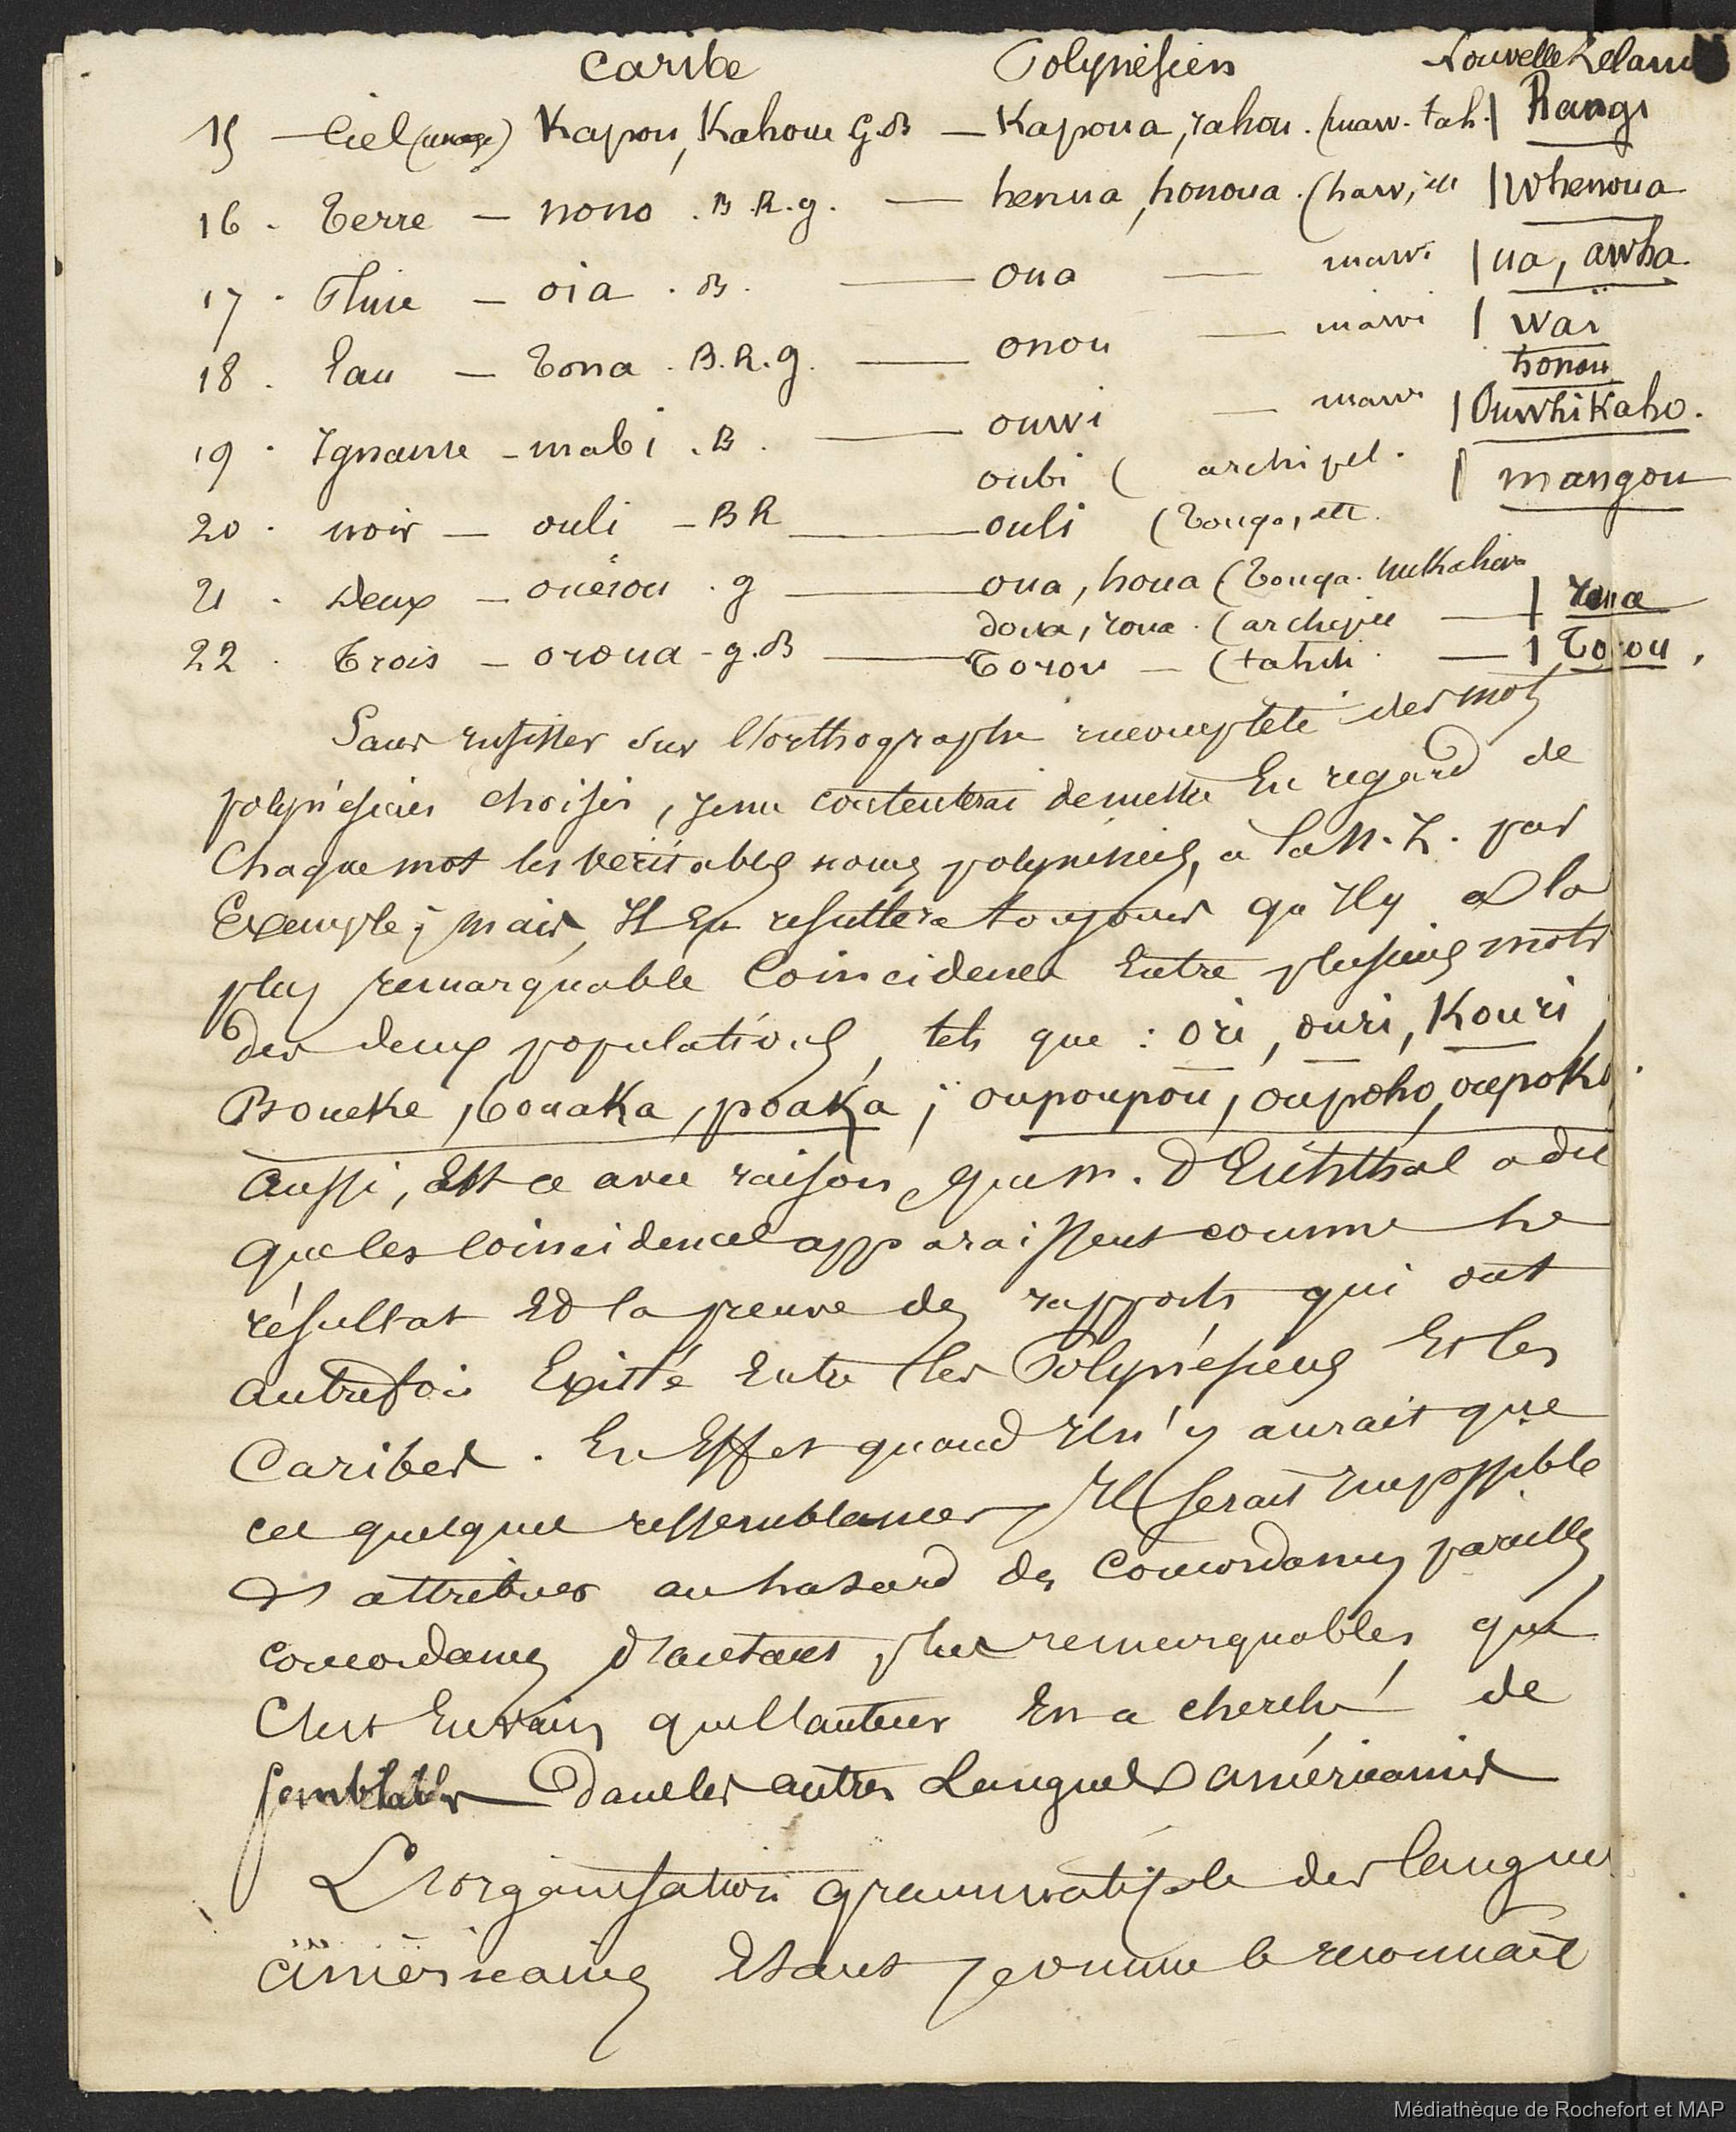 Caribe Polynésien Nouvelle Zélan
15 — Ciel (nuage) Kapou, Kahoue G.B — Kapoua, rahou. (marq. tah.| Rangi
16 . Terre — nono . B.R.g. — henua, honoua . (haw, etc | Whenoua
17 . Pluie — oia . B. — oua — marq. | ua, awha.
18 . Eau — Tona . B.R.g. — onou — marq. | waï
honou
19 . Igname — mabi . B. — ouwi — marq. | Ouwhikaho.
oubi ( archipel. | mangou
20 . noir — ouli — BR — ouli (Tonga, etc.
21 . Deux — ouérou . g — oua, houa (Tonga. Nukahiva
doua, roua . (archipel — | roua
22 . Trois — oroua - g.B — Torou — (tahiti . — | Torou .
Sans insister sur l'orthographe incomplète des mots
polynésiens choisis, je me contenterai de mettre En regard de
Chaque mot les véritables noms polynésiens, à la N.Z. par
Exemple ; mais, Il En résultera toujours qu'Il y a la
plus remarquable Coincidence Entre plusieurs mots
des deux populations, tels que : ori, ouri, Kouri,
Boueke, bouaka, poaka ; oupoupou, oupoho, oupoko.
Aussi, Est ce avec raison que m. d'Eichthal a dit
que les Coincidences apparaissent comme le
résultat Et la preuve des rapports qui ont
autrefois Existé Entre les Polynésiens Et les
Caribes . En Effet quand Il n'y aurait que
ces quelques ressemblances, Il serait Impossible
d'attribuer au hasard des Concordances pareilles,
concordances d'autant plus remarquables que
C'est En vain que l'auteur En a cherché de
semblables dans les autres Langues américaines
L'organisation grammaticale des langues
américaines Etant, comme le reconnait
Médiathèque de Rochefort et MAP